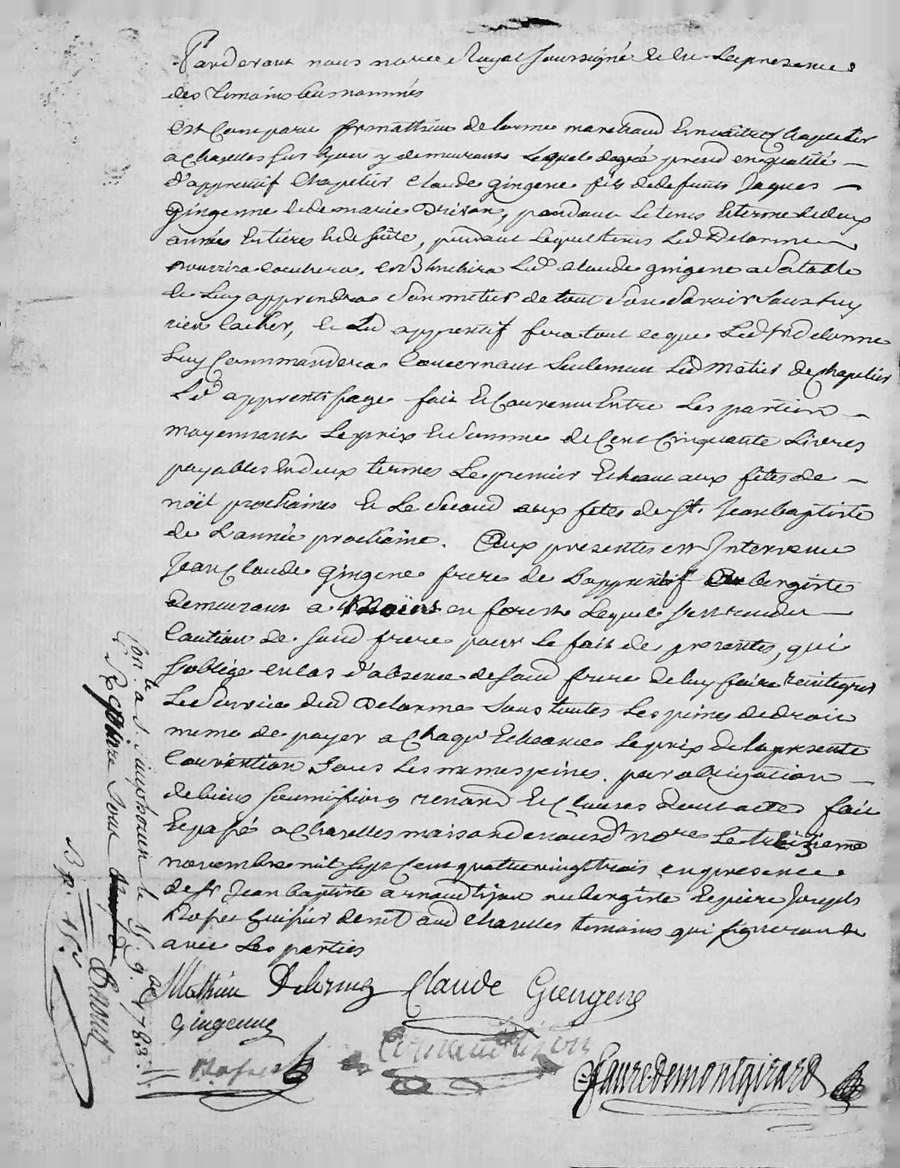 Pardevant nous notre Royal soussigné & en la presence
des temoins bas nommés
Est Comparu sr mathieu delorme marchand Enmaitre Chapelier
a Chazelles sur Lyon y demeurant Lequel dagré prend en qualité
d'apprentif Chapelier Claude gingene fils de defunts Jaques
gingenne & de marie , pendant Letems & terme de deux
années Entieres & de suite, pendant Lequel tems Led Delorme
nourrira couchera, & Blanchira Led. Claude gingene a sa table
& Luy apprendra son metier de tout son savoir sans Luy
rien Cacher, & Led apprentif fera tout ce que Led sr delorme
Luy Commandera Concernant Seulement Led métier de Chapelier
Led apprentissage fait & Convenu Entre Les parties
moyennant Le prix & somme de Cent Cinquante Livres
payables en deux termes Le premier Echeant aux fêtes de
noël prochaines & Le second aux fêtes de st. Jean baptiste
de L'année prochaine. Aux presentes est Intervenu
Jean Claude gingene frere de Lapprentif aubergiste
demeurant a en forest Lequel s'est rendu
Caution de sond frere pour Le fait des presentes, qui
s'oblige en cas d'absence de sond frere de luy faire reintegrer
Le service dud Delorme sous toutes Les peines de droit
meme de payer a Chaqu' Echeance Le prix de la presente
Convention sous Les memes peines. par obligation
de biens soumissions renond & Clauses dont acte fait
& passé a Chazelles maison de nousd notre Le treizieme
novembre mil sept Cent quatre vingt trois en presence
de sr Jean baptiste arnaud tison aubergiste & pierre Joseph
demt aud Chazelles temoins qui signeront
avec Les parties
Mathieu Delorme Claude Gengene
gingenne
Arnaud tison
Fauredemontgirard
Con.le a St. Simphorien le 15 9bre 1783.